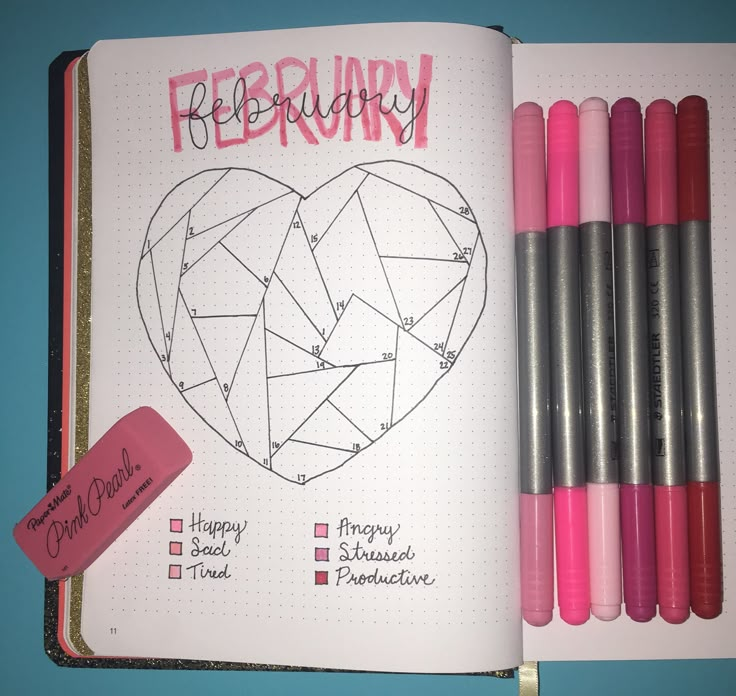 FEBRUARY
february
28
12
2
15
1
27
26
5
6
14
7
23
4
1
13
24
25
3
19
20
22
9
8
21
10
16
18
11
17
Paper Mate
Pink Pearl®
Latex FREE!
Happy
Sad
Tired
Angry
Stressed
Productive
11
STAEDTLER 320 CE